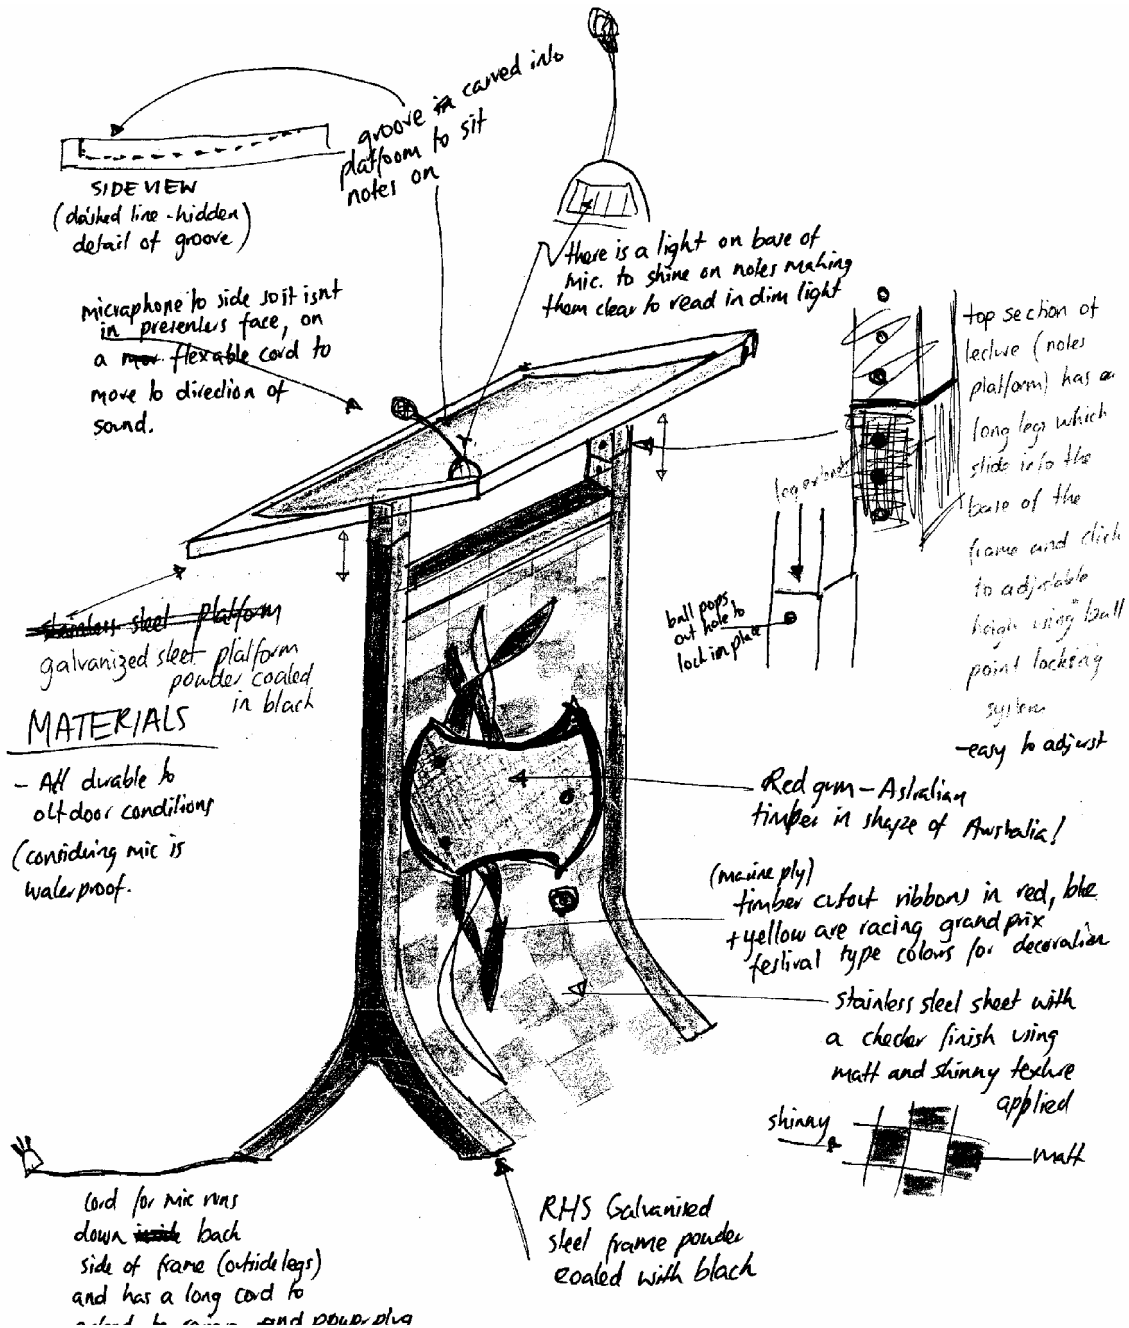 groove in carved into
platform to sit
notes on
SIDE VIEW
(dashed line - hidden
detail of groove)
there is a light on base of
mic. to shine on notes making
them clear to read in dim light
micraphone to side so it isnt
in presenters face, on
a flexable cord to
move to direction of
sound.
top section of
lecture (notes
platform) has a
long legs which
slide into the
base of the
frame and click
to adjstable
heigh using "ball
point locking
system
-easy to adjust
ball pops
out hole to
lock in place
stainless steel platform
galvanized steel platform
powder coated
in black
MATERIALS
- All durable to
outdoor conditions
(considering mic is
waterproof.
Red gum - Astralian
timber in shape of Australia!
(marine ply)
timber cutout ribbons in red, blue
+ yellow are racing grand prix
festival type colours for decoration
stainless steel sheet with
a checker finish using
matt and shinny texture
applied
shinny
matt
cord for mic runs
down inside back
side of frame (outside legs)
and has a long cord to
and power plug
RHS Galvanised
steel frame powder
coated with black